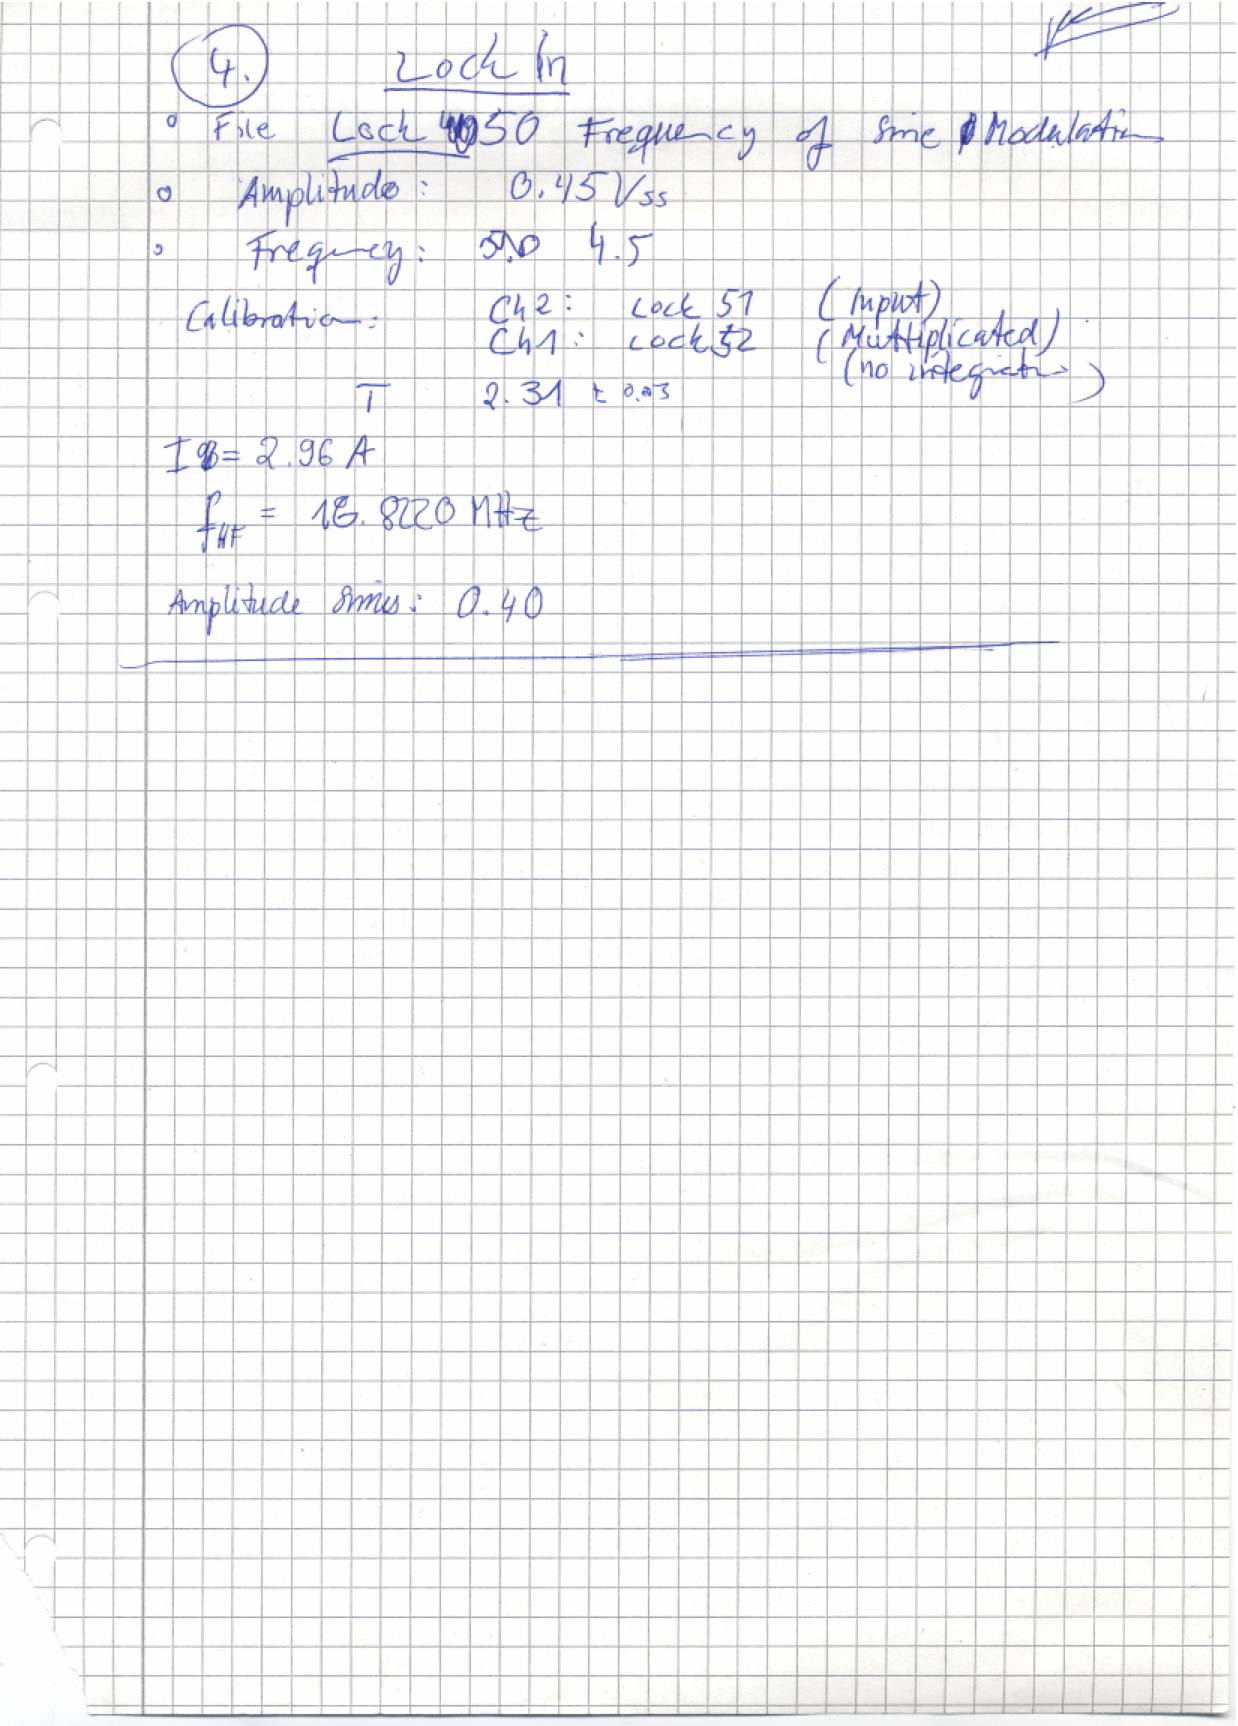 4. Lock In
File Lock 50 Frequency of Sine Modulation
Amplitude: 0.45 Vss
Frequency: 4.5
Calibration: Ch2: Lock 51 (Input)
Ch1: Lock 52 (Multiplicated)
(no integration)
T 2.31 ± 0.03
I = 2.96 A
f_HF = 18.8220 MHz
Amplitude Sinus: 0.40